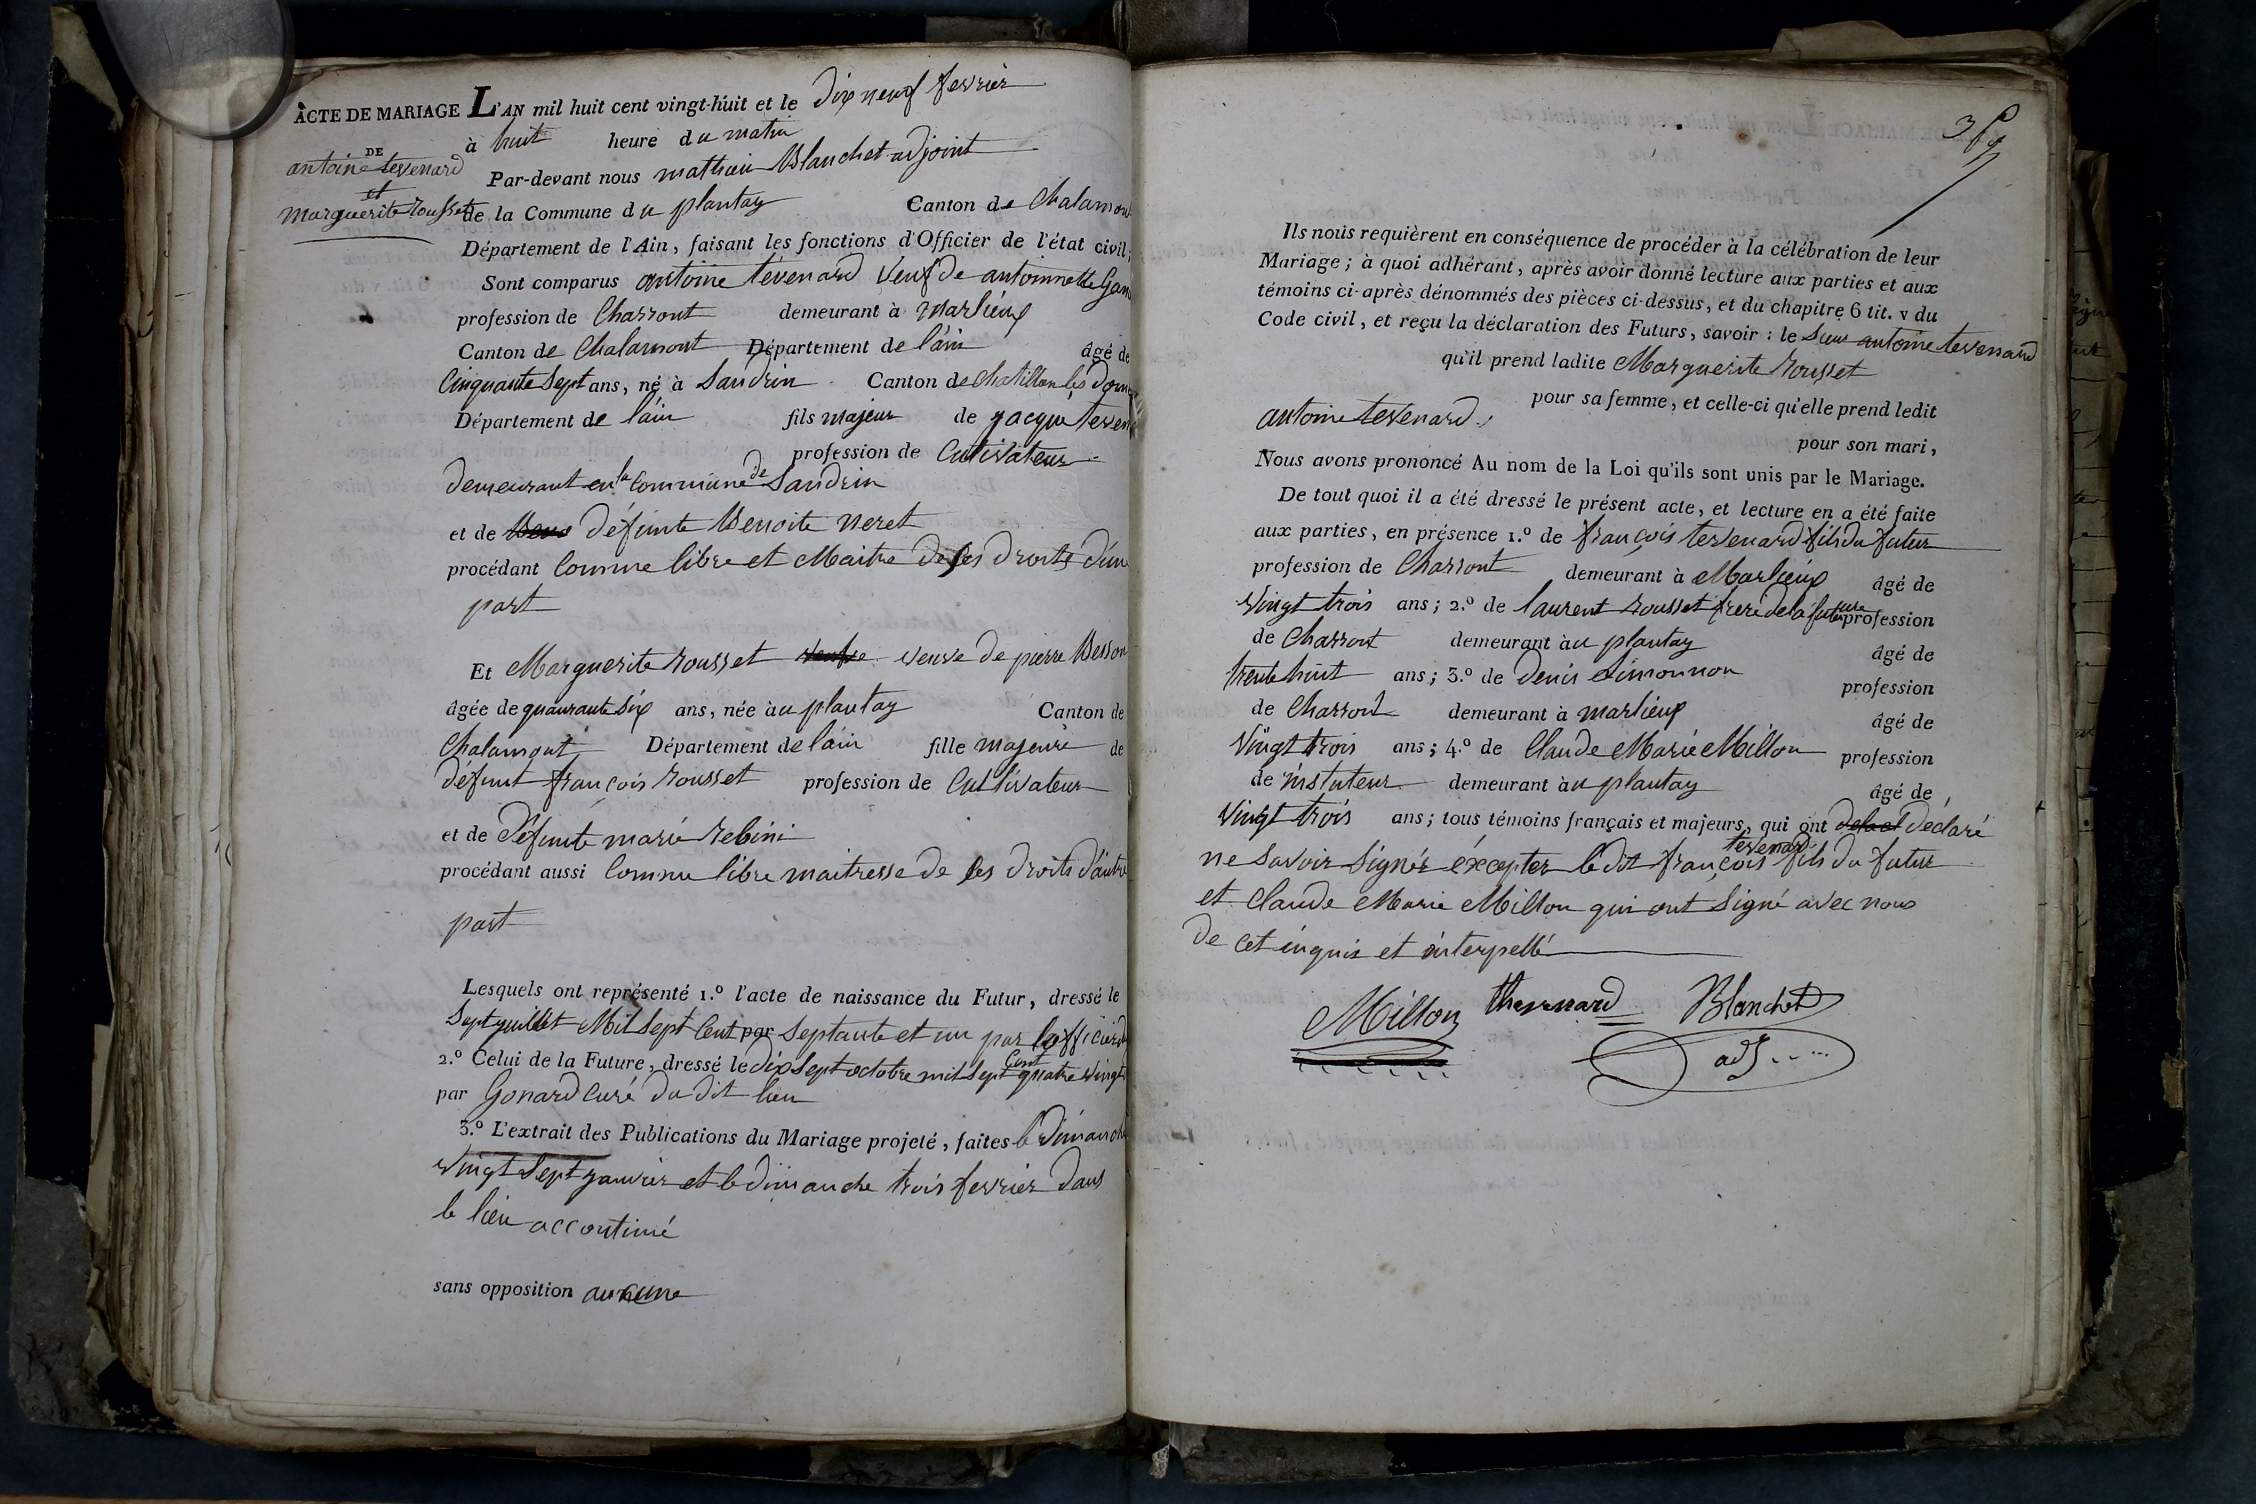 ACTE DE MARIAGE L'AN mil huit cent vingt-huit et le dix neuf fevrier
à huit heure du matin
DE
antoine tevenard
et
marguerite rousset
Par-devant nous mathieu Blanchet adjoint
de la Commune du plantay Canton de Chalamont
Département de l'Ain, faisant les fonctions d'Officier de l'état civil;
Sont comparus antoine tévenard veuf de antoinnette
profession de Charront demeurant à Marlieux
Canton de Chalamont Département de l'ain âgé de
Cinquante sept ans, né à Sandrin Canton de chatillon lés
Département de l'ain fils majeur de jacque
profession de Cutivateur
demeurant en la commune de Sandrin
et de défunte Benoite neret
procédant Comme libre et Maitre de ses droits d'une
part
Et Marguerite rousset veuve de pierre Besson
âgée de quaurante six ans, née au plantay Canton de
Chalamont Département de lain fille majeure de
défunt françois rousset profession de Cultivateur
et de Défunte marie rebini
procédant aussi Comme libre maitresse de ses droits d'autre
part
Lesquels ont représenté 1.º l'acte de naissance du Futur, dressé le
Sept juillet Mil sept Cent par septante et un par l'officier
2.º Celui de la Future, dressé le dix sept octobre mil sept Cent quatre vingt
par Gonard curé du dit lieu
3.º L'extrait des Publications du Mariage projeté, faites le dimanche
vingt sept janvier et le dimanche trois fevrier dans
le lieu accoutimé
sans opposition aucune
Ils nous requièrent en conséquence de procéder à la célébration de leur
Mariage; à quoi adhérant, après avoir donné lecture aux parties et aux
témoins ci-après dénommés des pièces ci-dessus, et du chapitre 6 tit. v du
Code civil, et reçu la déclaration des Futurs, savoir : le sieur antoine tevenard
qu'il prend ladite Marguerite rousset
pour sa femme, et celle-ci qu'elle prend ledit
antoine tevenard
pour son mari,
Nous avons prononcé Au nom de la Loi qu'ils sont unis par le Mariage.
De tout quoi il a été dressé le présent acte, et lecture en a été faite
aux parties, en présence 1.º de françois tevenard fils du futur
profession de Charront demeurant à Marlieux âgé de
vingt trois ans; 2.º de laurent rousset frere de la future profession
de Charront demeurant au plantay âgé de
trente huit ans; 3.º de denis Simonnon profession
de Charront demeurant à marlieux âgé de
vingt trois ans; 4.º de Claude Marie Millon profession
de instuteur demeurant au plantay âgé de
vingt trois ans; tous témoins français et majeurs, qui ont déclaré
ne savoir signér éxcepter le dit françois tevenard fils du futur
et Claude Marie Millon qui ont signé avec nous
de cet enquis et interpellé
Millon thevenard Blanchet
adj